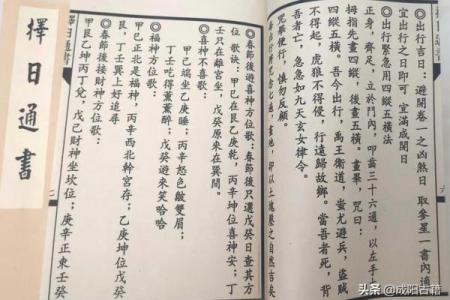 擇日通書
六
◎出行吉日:避開卷一之凶煞日 取參星一書內通
宜出行之日即可 宜滿成開日
◎出行緊急用四縱五橫法
正身,齊足,立於門內,叩齒三十六通,以左手大
拇指先畫四縱,後畫五橫。畫畢,咒曰:
四縱五橫,吾今出行,禹王衛道,蚩尤避兵,盜賊
不得起,虎狼不得侵,行遠歸故鄉。當吾者死,背
吾者亡。急急如九天玄女律令。
咒畢便行,慎勿反顧。
畫地,即以土塊壓之自然吉矣
◎春節後遊喜神方位歌:春節後只選戊癸日查其方
位 歌訣:甲己在艮乙庚乾,丙辛坤位喜神安;丁
壬只在離宮坐,戊癸原來在巽間。
◎喜神不喜歌:
甲己端坐乙庚睡;丙辛怒色皺雙眉;
丁壬吃得薰薰醉;戊癸遊來笑哈哈
◎福神方位歌:
甲己正北是福神,丙辛西北幹宮存;乙庚坤位戊癸
艮,丁壬巽上好追尋
◎春節後接財神方位歌:
甲艮乙坤丙丁兌,戊己財神坐坎位;庚辛正東壬癸
擇日通書
二
头条 @成阳古籍